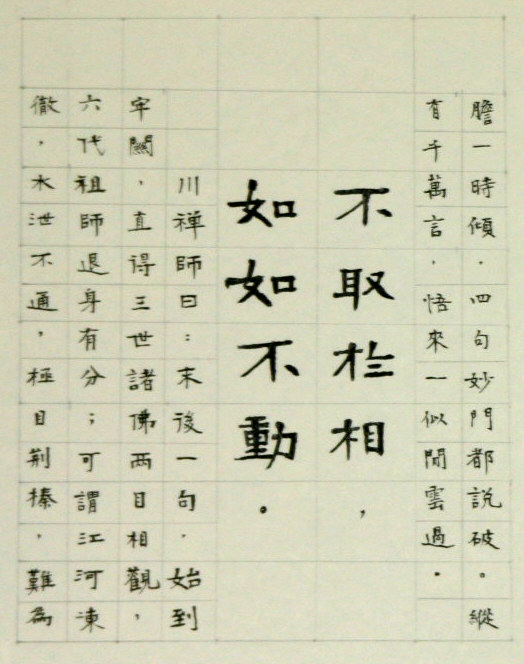 膽一時傾．四句妙門都說破。縱
有千萬言，悟來一似閒雲過．
不取於相，
如如不動．
川禪師曰：末後一句，始到
牢關，直得三世諸佛兩目相觀，
六代祖師退身有分；可謂江河凍
徹，水泄不通，極目荆榛，難為